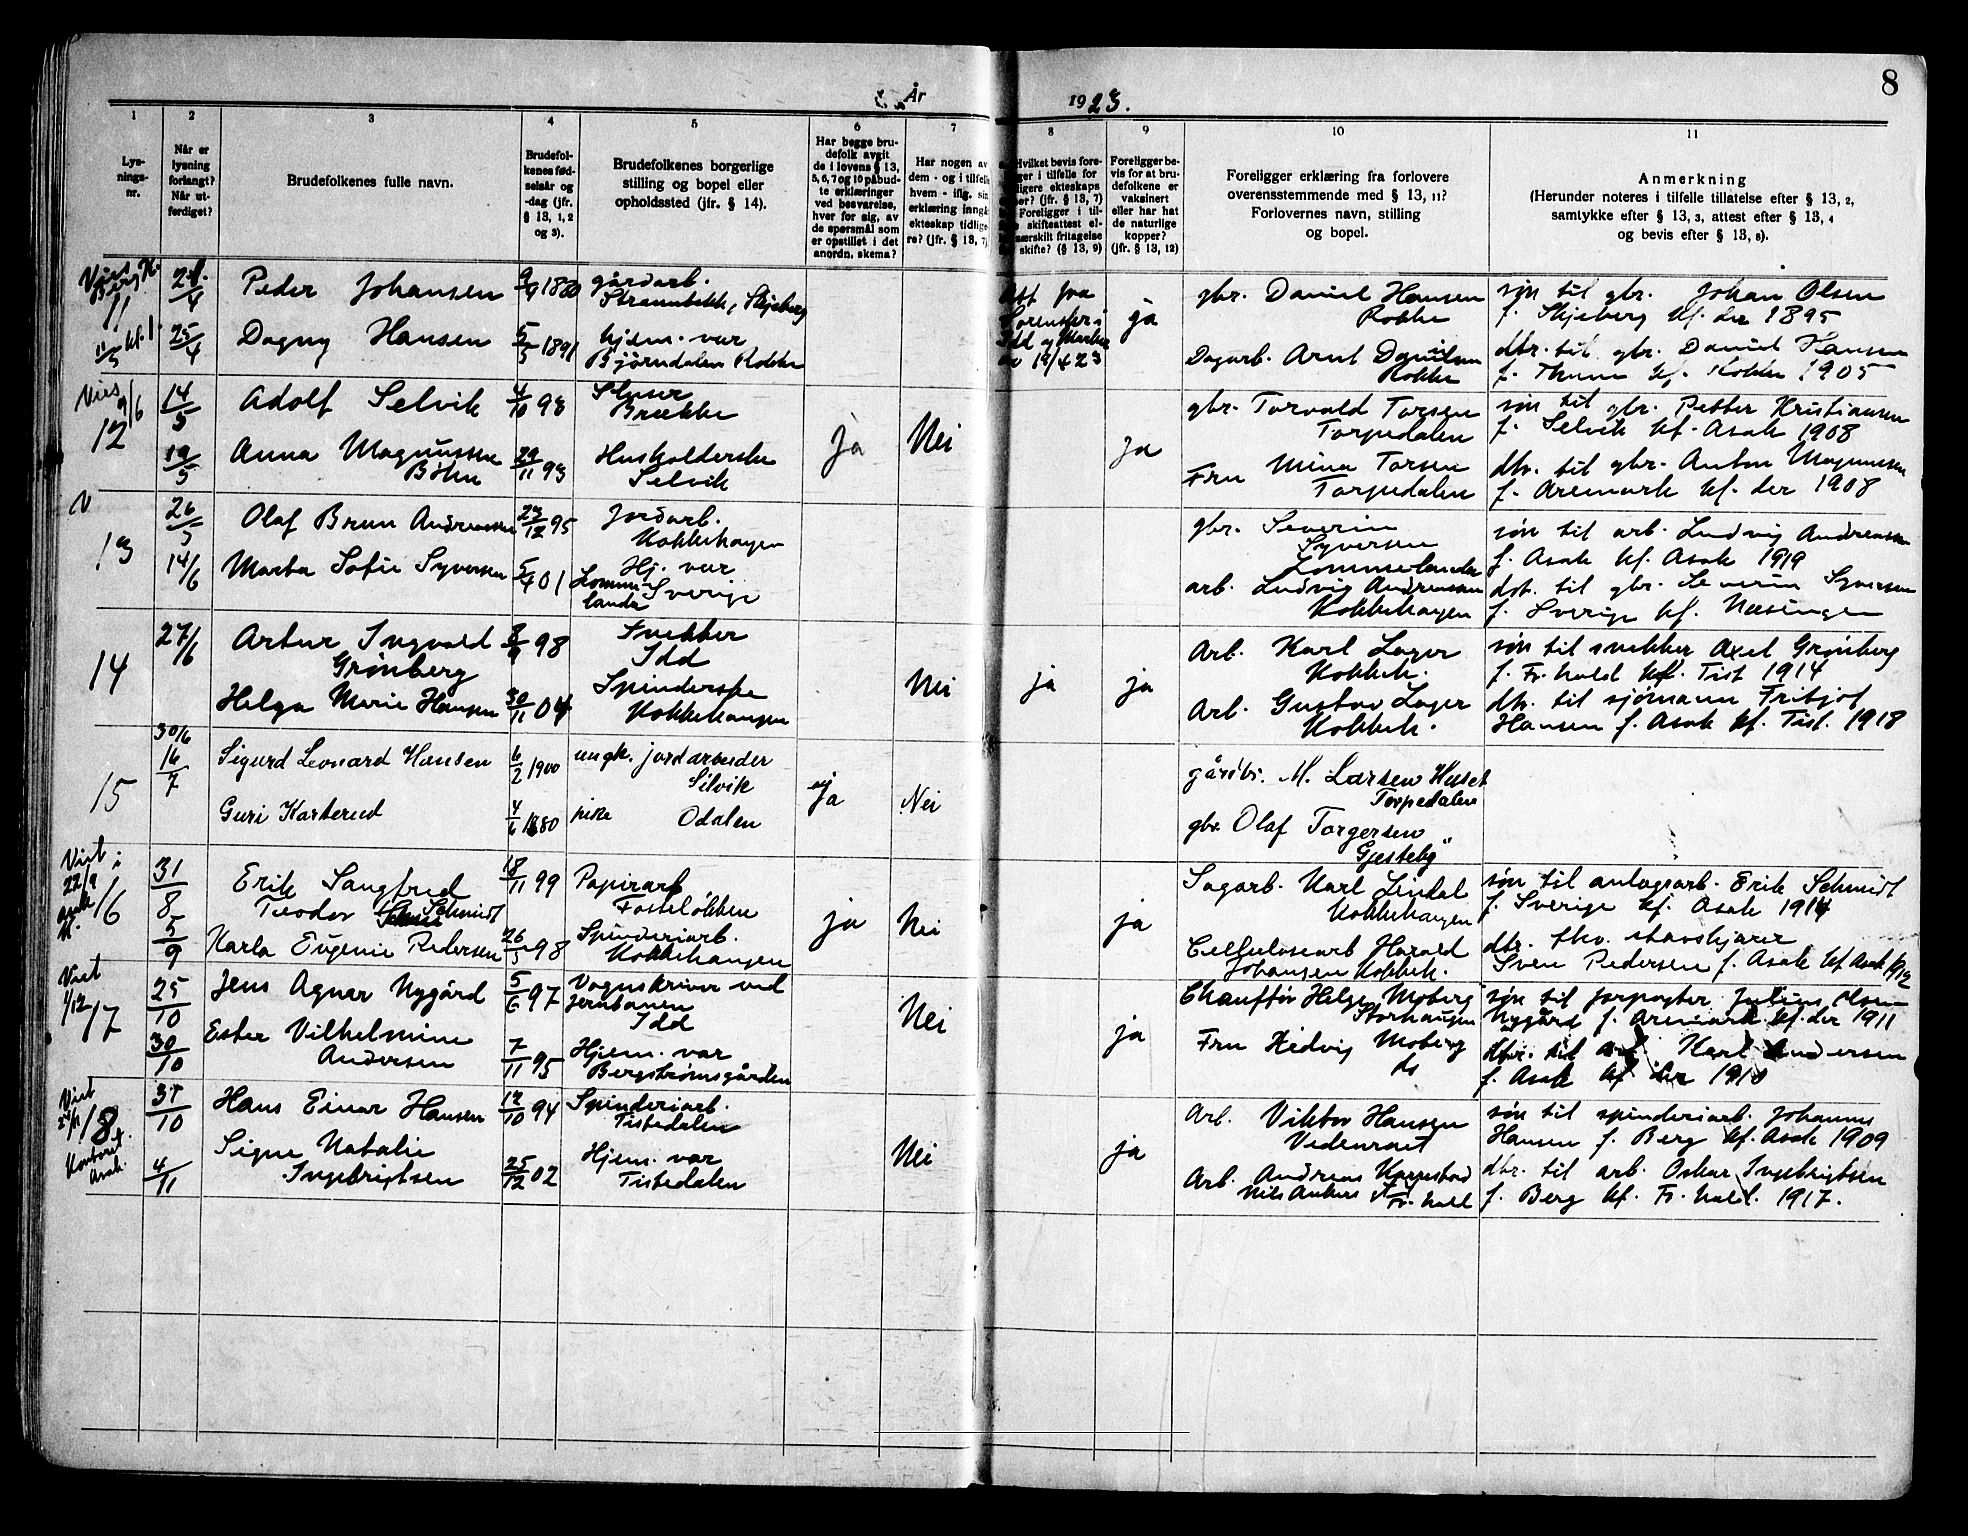 8
År 1923.
1
2
3
4
5
6
7
8
9
10
11
Lys-
nings-
nr.
Når er
lysning
forlangt?
Når ut-
ferdiget?
Brudefolkenes fulle navn.
Brudefol-
kenes fød-
selsår og
-dag (jfr.
§ 13, 1, 2
og 3).
Brudefolkenes borgerlige
stilling og bopel eller
opholdssted (jfr. § 14).
Har begge bru-
defolk avgit
de i lovens § 13,
5, 6, 7 og 10 påbud-
te erklæringer
ved besvarelse,
hver for sig, av
de spørsmål som
er opstillet i det
anordn. skema?
Har nogen av
dem - og i tilfelle
hvem - iflg. sin
erklæring inngåt
ekteskap tidlige-
re? (jfr. § 13, 7)
Hvilket bevis fore-
ger i tilfelle for
ligere ekteskaps
er? (jfr. § 13, 7)
Foreligger i til-
skifteattest el-
særskilt fritagelse
skifte? (§ 13, 9)
Foreligger be-
vis for at bru-
defolkene er
vaksinert
eller har hat
de naturlige
kopper?
(jfr. § 13, 12)
Foreligger erklæring fra forlovere
overensstemmende med § 13, 11?
Forlovernes navn, stilling
og bopel.
Anmerkning
(Herunder noteres i tilfelle tillatelse efter § 13, 2,
samtykke efter § 13, 3, attest efter § 13, 4
og bevis efter § 13, 8).
11
Peder Johansen
gårdarb.
Skjeberg
ja
gbr. Daniel Hansen
Rokke
søn til gbr. Johan Olsen
f. Skjeberg kf. der 1895
25/4 Dagny Hansen 5/5 1891 hjem. vær
Bjørndalen Rokke
Dagarb. Arnt Danilsen
Rokke
dtr. til gbr. Daniel Hansen
f. Thune kf. Rokke 1905
Vies
9/6
12
14/5 Adolf Selvik 4/10 93
Brække
Ja Nei Ja
gbr. Torvald Torsen
Torpedalen
søn til gbr. Petter Kristiansen
f. Selvik kf. Asak 1908
19/5 Anna Magnussen
Bøhn
29/11 93 Husholderske
Selvik
Fru Mina Torsen
Torpedalen
dtr. til gbr. Anton Magnussen
f. Aremark kf. der 1908
V
13
26/5 Olaf Brun Andreassen 23/12 95 Jordarb.
Kokkehaugen
gbr. Severin
Syversen
Lommerlande
søn til arb. Ludvig Andreassen
f. Asak kf. Asak 1919
14/6 Marta Sofie Syversen 5/4 01 Hj. vær
Lommer-
lande Sverige
arb. Ludvig Andreassen
Kokkehaugen
dtr. til gbr. Severin Syversen
f. Sverige kf. Næsinge
14
27/6 Artur Ingvald
Grønberg
8/9 98 Snekker
Idd
Nei ja ja
Arb. Karl Lager
Kokkeh.
søn til snekker Axel Grønberg
f. Fr.hald kf. Tist 1914
Helga Marie Hansen 30/11 04 Spinderske
Kokkehaugen
Arb. Gustav Lager
Kokkeh.
dtr. til sjømann Fritjof
Hansen f. Asak kf. Tist. 1918
15
30/6
16/7
Sigurd Leonard Hansen 6/2 1900 ungk. jordarbeider
Silvik
ja Nei
M. Larsen Huset
Torpedalen
Guri Karterud 4/6 1880 pike Odalen
gbr. Olaf Torgersen
Gjesteby
Viet i
22/9
16
31/8 Erik Sangfred
Teodor Schmidt
18/11 99 Papirarb
Fosseløkken
ja Nei ja
Sagarb. Karl Lindal
Kokkehaugen
søn til anlægsarb. Erik Schmidt
f. Sverige kf. Asak 1914
5/9 Karla Eugenie Pedersen 26/5 98 Spinderiarb.
Kokkehaugen
Cellulosearb Harald
Johansen Kokkeh.
dtr.
Sven Pedersen f. Asak kf Asak 1912
Viet
1/12
17
25/10 Jens Agnar Nygård 5/6 97 Vognskriver ved
Jernbanen
Idd
Nei ja
Chauffør Helge Moberg
Storhaugen
søn til forpagter Julius Olsen
Nygård f. Aremark kf. der 1911
30/10 Ester Vilhelmine
Andersen
7/11 95 Hjem. vær
Bergstrømsgården
Fru Hedvig Moberg
ds
dtr. til Karl Andersen
f. Asak kf der 1910
Viet
24/11
18
Kontoret
Asak.
31/10 Hans Einar Hansen 12/10 94 Spinderiarb.
Tistedalen
Nei ja
Arb. Viktor Hansen
Vedenraet
søn til spinderiarb. Johannes
Hansen f. Berg kf. Asak 1909
4/11 Signe Natalie
Ingebrigtsen
25/12 02 Hjem. vær
Tistedalen
Arb. Andreas
Nils Ankers Fr.hald
dtr. til arb. Oskar Ingebrigtsen
f. Berg kf. Fr.hald. 1917.